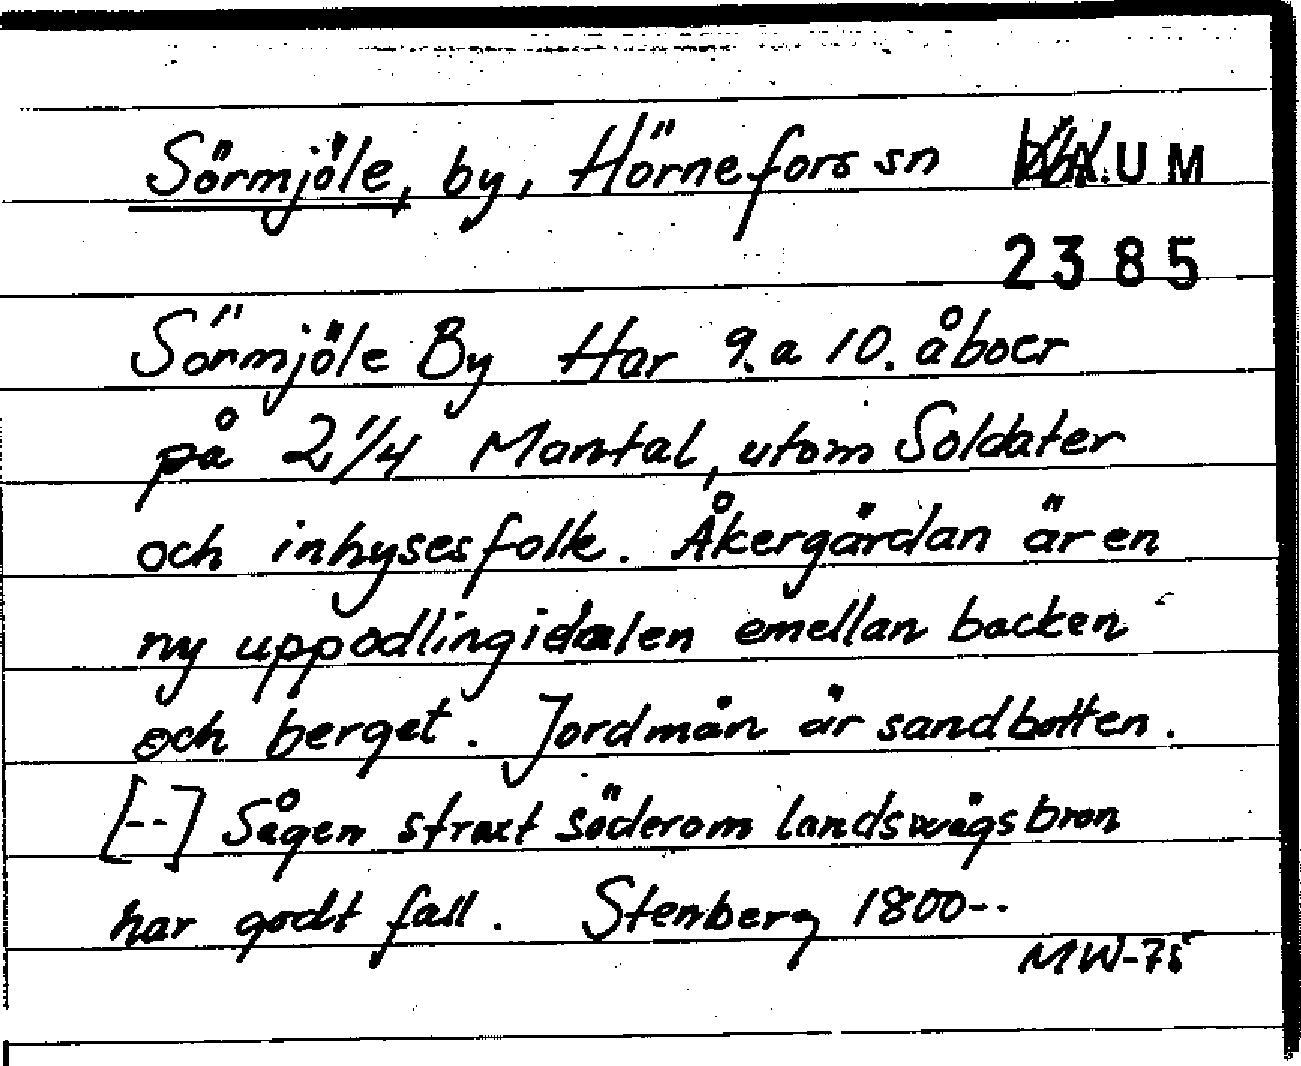 Sörmjöle, by, Hörnefors sn
D.A.U M
2385
Sörmjöle By Har 9. a 10. åboer
på 2 1/4 Mantal, utom Soldater
och inhysesfolk. Åkergärdan är en
ny uppodling i dalen emellan backen
och berget. Jordmån är sandbotten.
[--] Sågen straxt söderom landswägsbron
har godt fall. Stenberg 1800--
MW-75